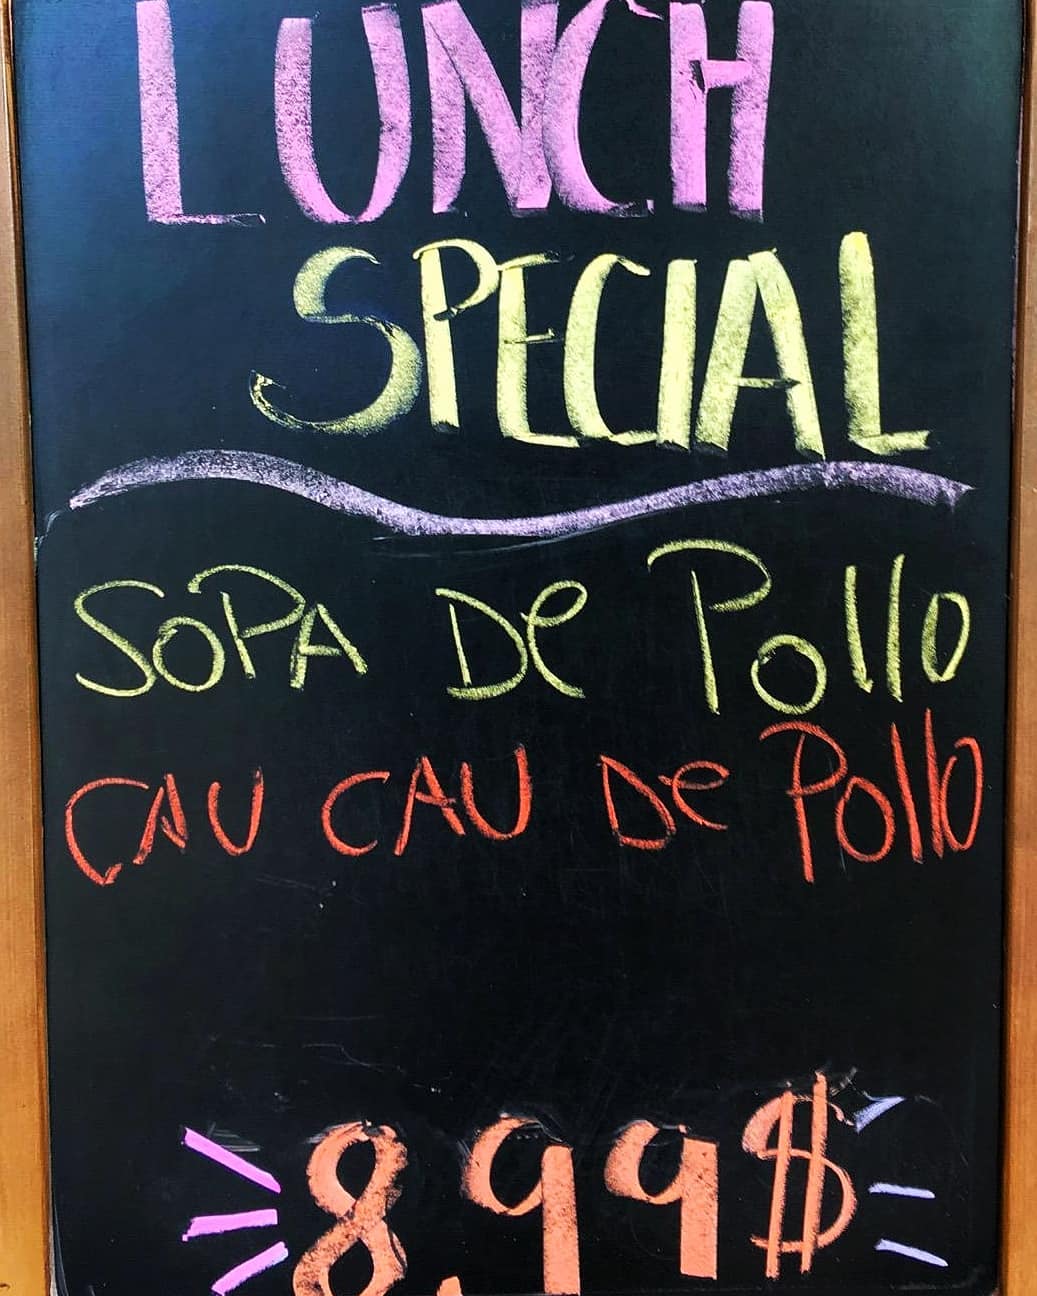 LUNCH
SPECIAL
SOPA De Pollo
CAU CAU De Pollo
8.99$